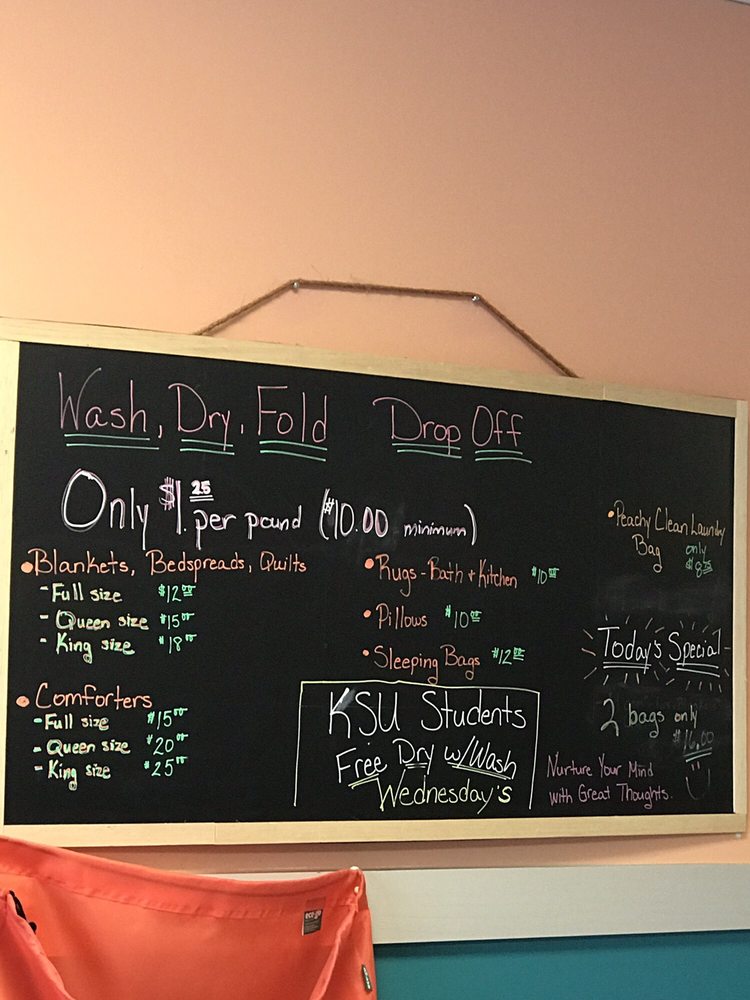 Wash, Dry, Fold Drop Off
Only $1.25 per pound ($10.00 minimum)
• Blankets, Bedspreads, Quilts
- Full size $12.00
- Queen size $15.00
- King size $18.00
• Comforters
- Full size $15.00
- Queen size $20.00
- King size $25.00
• Rugs - Bath + Kitchen $10.00
• Pillows $10.00
• Sleeping Bags $12.00
KSU Students
Free Dry w/Wash
Wednesday's
• Peachy Clean Laundry
Bag only
Today's Special
2 bags only
$16.00
Nurture Your Mind
with Great Thoughts.